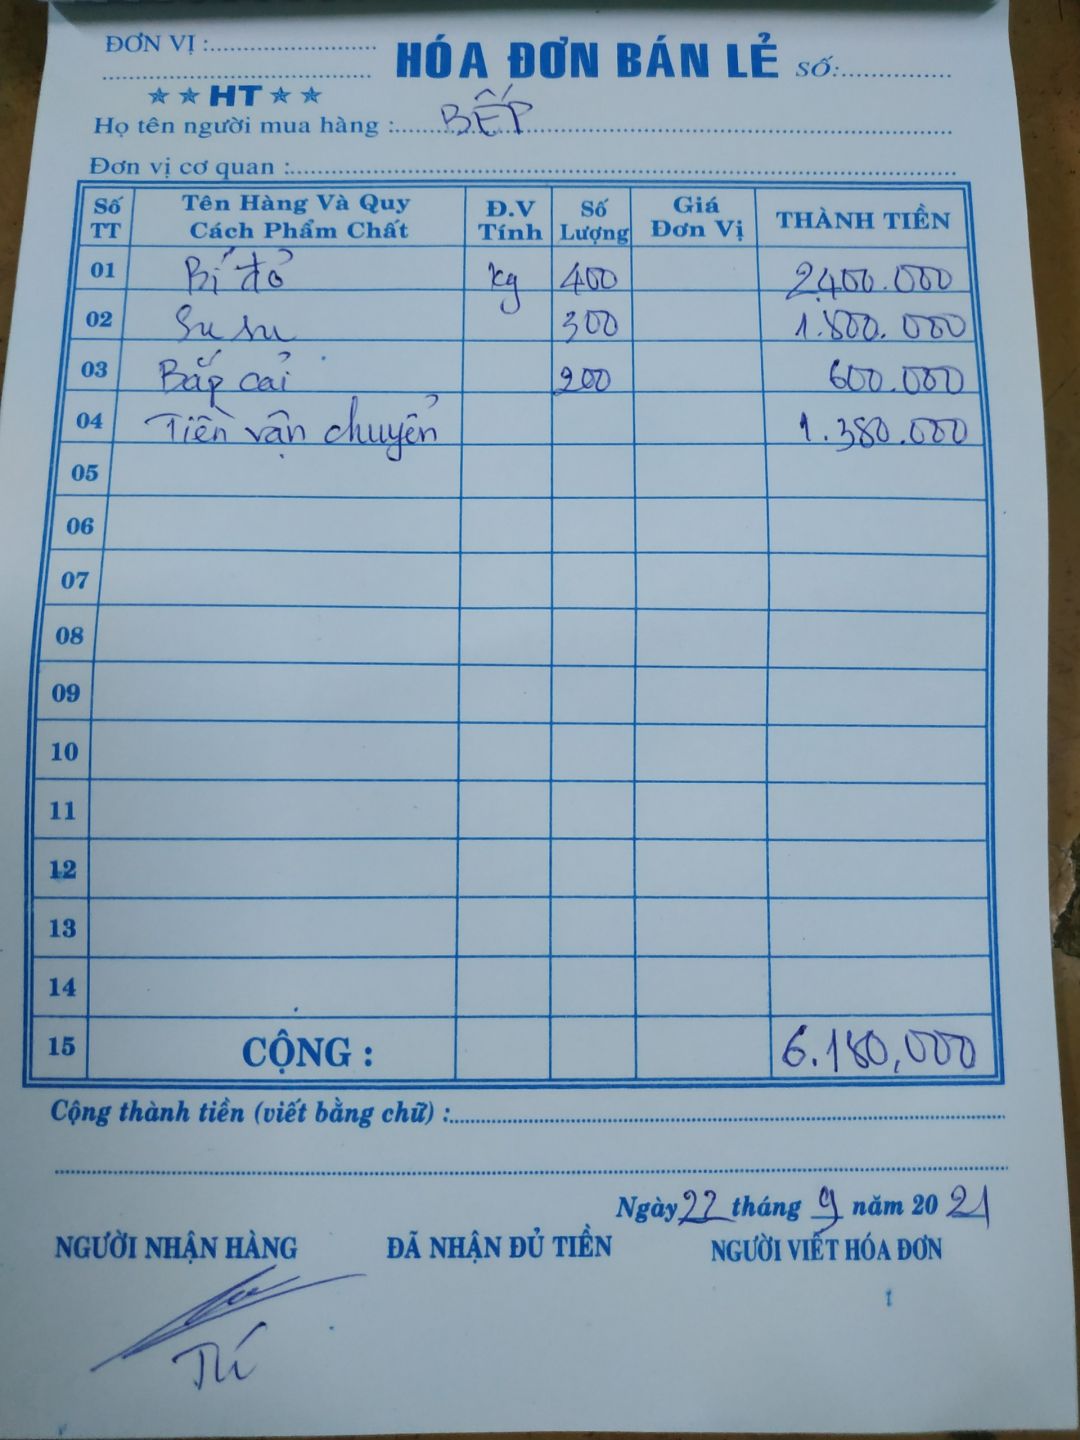 ĐƠN VỊ :
HÓA ĐƠN BÁN LẺ SỐ:
★ ★ HT ★ ★
Họ tên người mua hàng : BẾP
Đơn vị cơ quan :
Số TT Tên Hàng Và Quy Cách Phẩm Chất Đ.V Tính Số Lượng Giá Đơn Vị THÀNH TIỀN
01 Bí đỏ kg 400 2.400.000
02 Su su 300 1.800.000
03 Bắp cải 200 600.000
04 Tiền vận chuyển 1.380.000
05
06
07
08
09
10
11
12
13
14
15 CỘNG : 6.180,000
Cộng thành tiền (viết bằng chữ) :
Ngày 22 tháng 9 năm 20 21
NGƯỜI NHẬN HÀNG ĐÃ NHẬN ĐỦ TIỀN NGƯỜI VIẾT HÓA ĐƠN